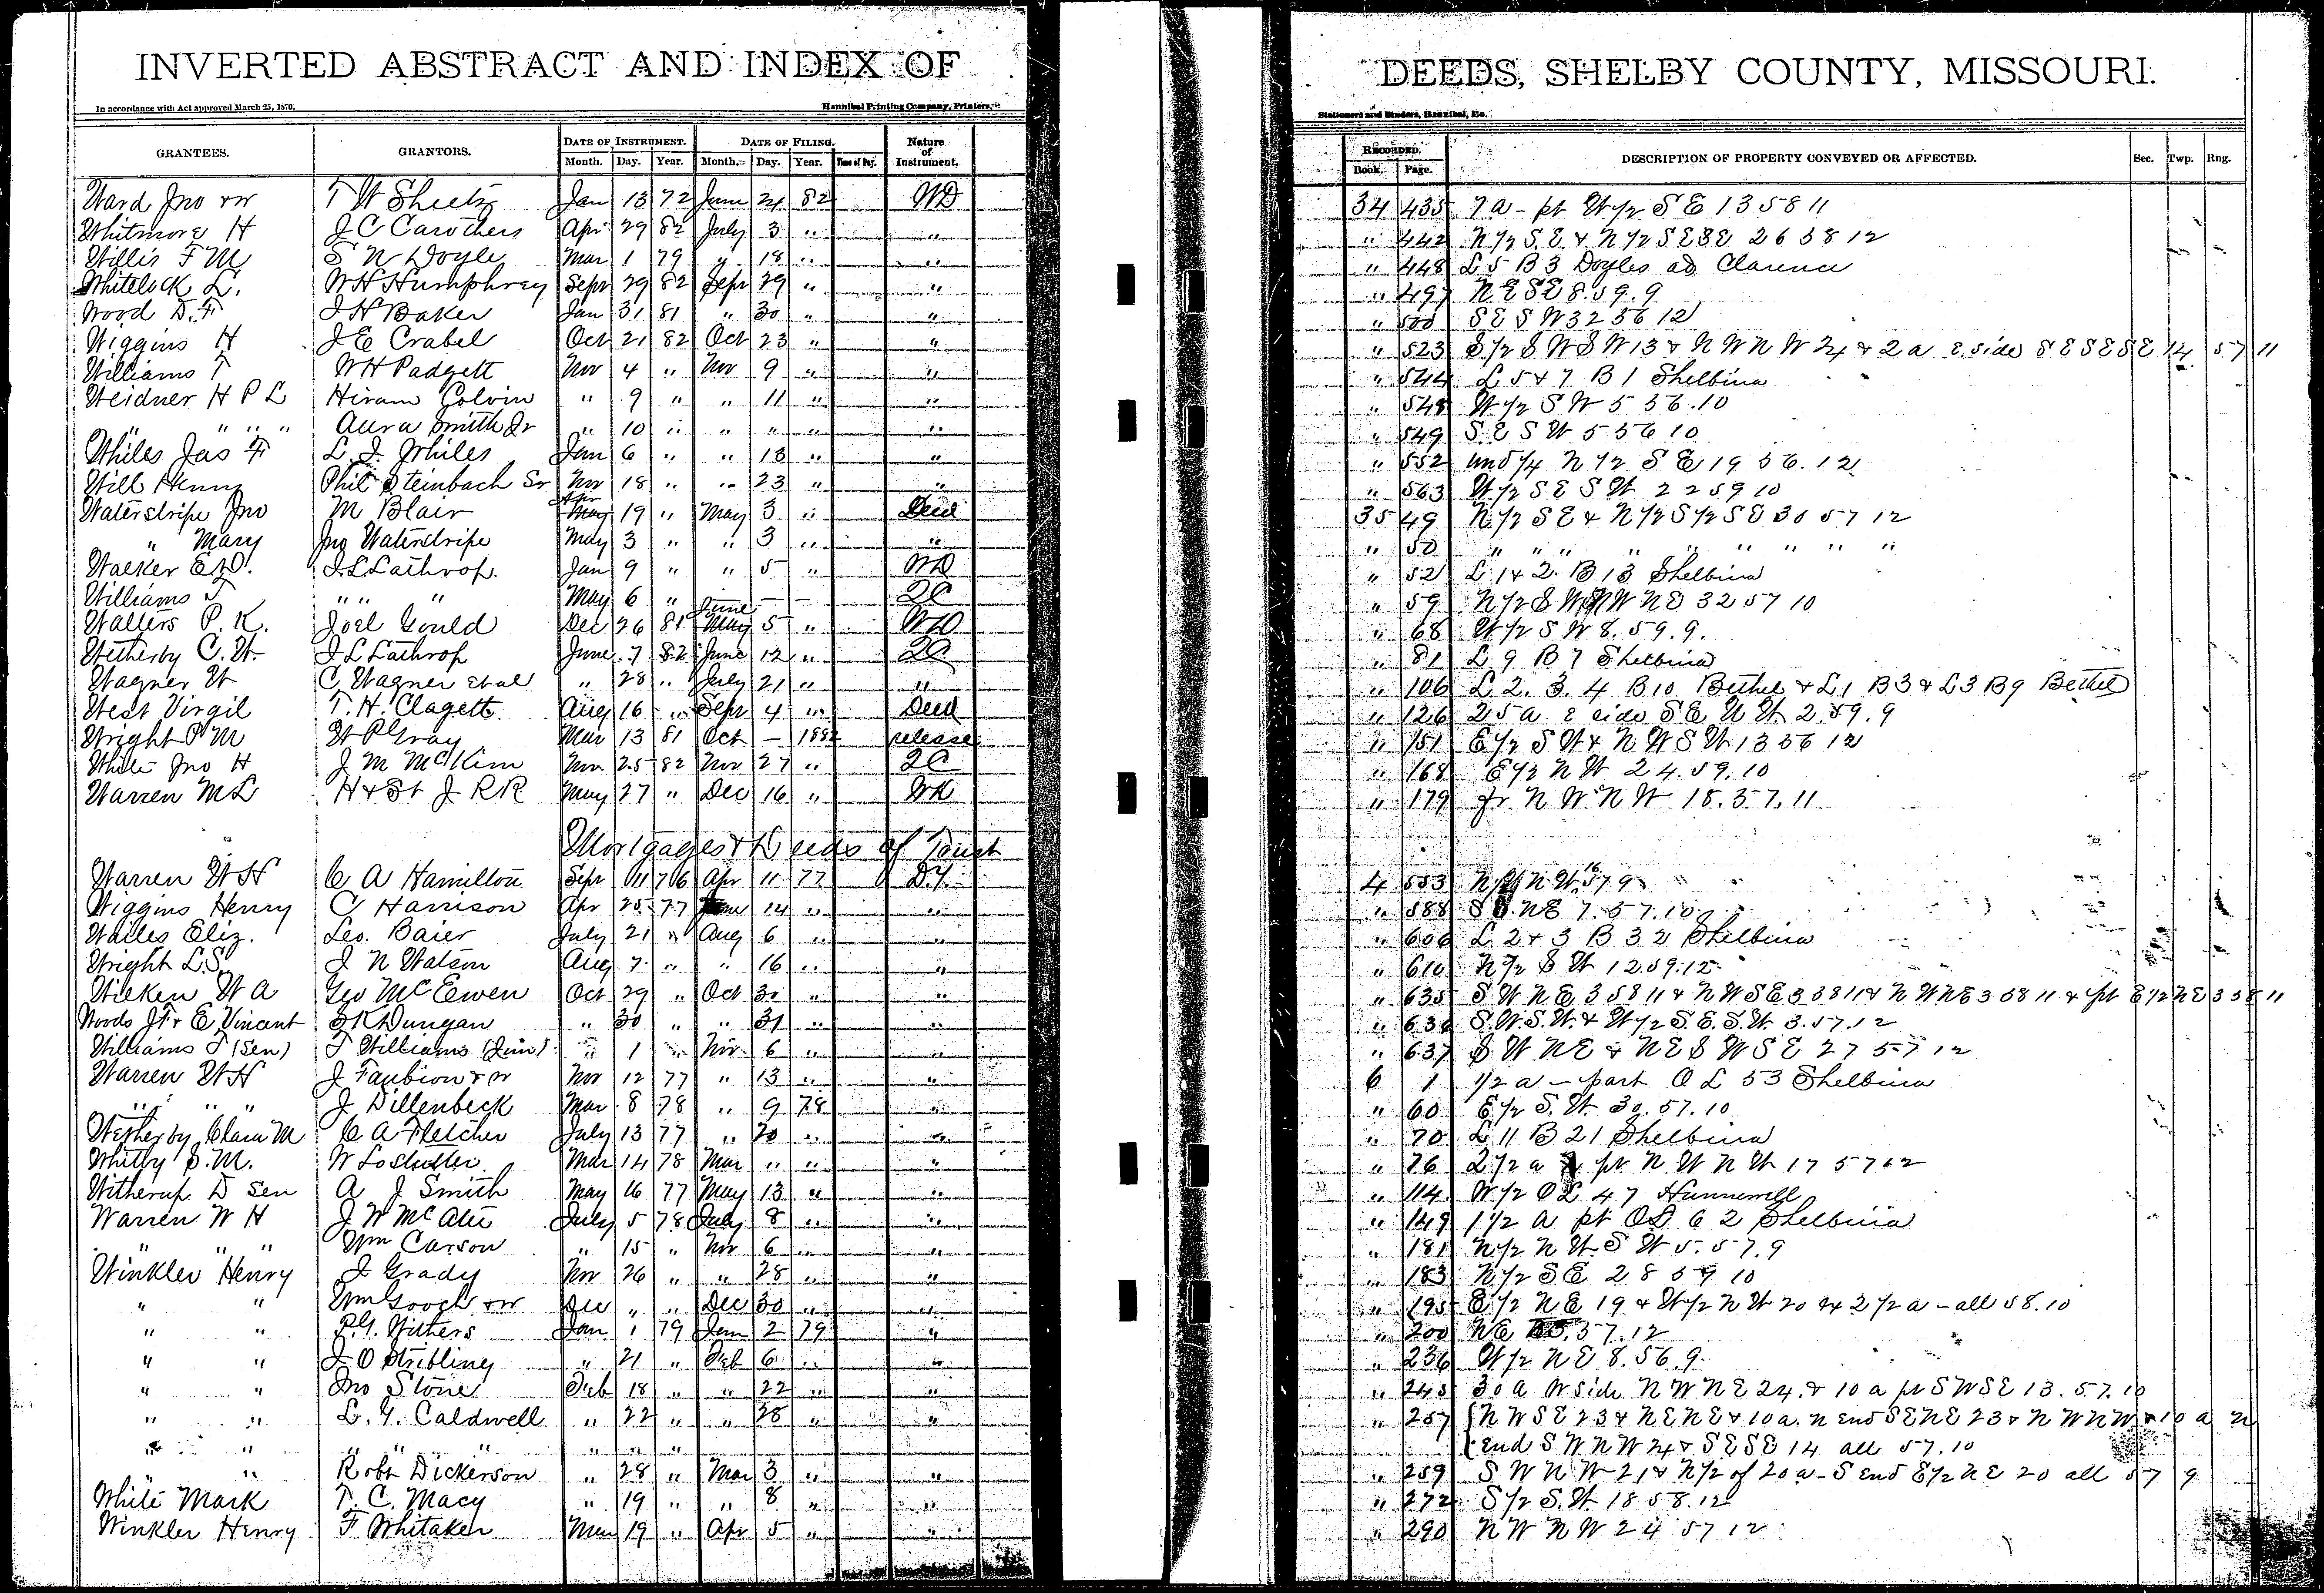 INVERTED ABSTRACT AND INDEX OF DEEDS, SHELBY COUNTY, MISSOURI.
In accordance with Act approved March 25, 1870. Hannibal Printing Company, Printers, Stationers and Binders, Hannibal, Mo.
GRANTEES. GRANTORS. DATE OF INSTRUMENT. DATE OF FILING. Nature of Instrument. RECORDED. DESCRIPTION OF PROPERTY CONVEYED OR AFFECTED. Sec. Twp. Rng.
Month. Day. Year. Month. Day. Year. Time of Day. Book. Page.
Ward Jno & w T W Sheetz Jan 13 72 June 24 82 WD 34 435 7 a - pt W 1/2 S E 13 58 11
Whitmore H J C Carothers Apr 29 82 July 3 " " " 442 N 1/2 S.E. & N 1/2 S E S E 26 58 12
Willis F M S N Doyle Mar 1 79 " 18 " " " 448 L 5 B 3 Doyles ad Clarence
Whitelock L. W H Humphrey Sept 29 82 Sept 29 " " " 497 N E S E 8.59.9
Wood D. F J H Baker Jan 31 81 " 30 " " " 500 S E S W 32 56 12
Wiggins H J E Crabel Oct 21 82 Oct 23 " " " 523 S 1/2 S W S W 13 & N W N W 24 & 2 a E. side S E S E S E 14 57 11
Williams T W H Padgett Nov 4 " Nov 9 " " " 544 L 5 & 7 B 1 Shelbina
Weidner H P L Hiram Colvin " 9 " " 11 " " " 548 W 1/2 S W 5 56.10
" " " " Aura Smith Jr " 10 " " " " " " 549 S.E S W 5 56 10
Whiles Jas F L. J. Whiles Jan 6 " " 13 " " " 552 und 1/4 N 1/2 S E 19 56.12
Will Henry Phil Steinbach Sr Nov 18 " " 23 " " " 563 W 1/2 S E S W 2 2 59 10
Waterstripe Jno M Blair Apr 19 " May 3 " Deed 35 49 N 1/2 S E & N 1/2 S 1/2 S E 30 57 12
" Mary Jno Waterstripe May 3 " " 3 " " " 50 " " " " " " " " "
Walker E D. J. L Lathrop. Jan 9 " " 5 " WD " 52 L 1 & 2 B 13 Shelbina
Williams T " " " May 6 " — — QC " 59 N 1/2 S W N W N E 32 57 10
Walters P. K. Joel Gould Dec 26 81 June 5 " WD " 68 W 1/2 S W 8.59.9.
Wetherby C. W. J L Lathrop June 7 82 June 12 " QC " 81 L 9 B 7 Shelbina
Wagner W C Wagner et al " 28 " July 21 " " " 106 L 2. 3. 4 B 10 Bethel & L 1 B 3 & L 3 B 9 Bethel
West Virgil T. H. Clagett Aug 16 " Sept 4 " Deed " 126 25 a E side S E N W 2.59.9
Wright P M W P Gray Mar 13 81 Oct — 1882 release " 151 E 1/2 S W & N W S W 13 56 12
White Jno H J M McKim Nov 25 82 Nov 27 " QC " 168 E 1/2 N W 24.59.10
Warren M L H & St J RR May 27 " Dec 16 " WD " 179 fr N W N W 18.57.11
Mortgages & Deeds of Trust
Warren W H C A Hamilton Sept 11 76 Apr 11 77 D.T. 4 553 N W N W 16 57 9
Wiggins Henry C Harrison Apr 25 77 June 14 " " " 588 S E N E 7.57.10
Wailes Eliz. Leo. Baier July 21 " Aug 6 " " " 606 L 2 & 3 B 32 Shelbina
Wright L.S. J N Watson Aug 7 " " 16 " " " 610 N 1/2 S W 12.59.12
Wilken W A Geo McEwen Oct 29 " Oct 30 " " " 635 S W N E 3 58 11 & N W S E 3 58 11 & N W N E 3 58 11 & pt E 1/2 N E 3 58 11
Woods J F & E Vincent S K Dungan " 30 " " 31 " " " 636 S.W.S.W. & W 1/2 S.E.S.W. 3.57.12
Williams T (Sen) T Williams (Jun) " 1 " Nov 6 " " " 637 S W N E & N E S W S E 27 57 12
Warren W H J Faubion & w Nov 12 77 " 13 " " 6 1 1/2 a — part O L 53 Shelbina
" " " J Dillenbeck Mar 8 78 " 9 78 " " 60 E 1/2 S.W. 30.57.10
Wetherby Clara M C A Fletcher July 13 77 " 20 " " " 70 L 11 B 21 Shelbina
Whitby S. M. W Loshutter Mar 14 78 Mar " " " " 76 2 1/2 a pt N W N W 17 57 12
Witherup D Sen A J Smith May 16 77 May 13 " " " 114 W 1/2 O L 47 Hunnewell
Warren W H J W McAtee July 5 78 July 8 " " " 149 1 1/2 a pt OL 62 Shelbina
" " " Wm Carson " 15 " Nov 6 " " " 181 N 1/2 N W S W 5.57.9
Winkler Henry J Grady Nov 26 " " 28 " " " 183 N 1/2 S E 28 59 10
" " Wm Gooch & w Dec " " Dec 30 " " " 195 E 1/2 N E 19 & W 1/2 N W 20 & 2 1/2 a - all 58.10
" " P. Y. Withers Jan 1 79 Jan 2 79 " " 200 N E 35.57.12
" " J O Stribling " 21 " Feb 6 " " " 236 W 1/2 N E 8.56.9
" " Jno Stone Feb 18 " " 22 " " " 245 30 a W side N W N E 24. & 10 a pt S W S E 13.57.10
" " L. Y. Caldwell " 22 " " 28 " " " 257 N W S E 23 & N E N E & 10 a. N end S E N E 23 & N W N W & 10 a N
" " " " " " " " end S W N W 24 & S E S E 14 all 57.10
" Robt Dickerson " 28 " Mar 3 " " " 259 S W N W 21 & N 1/2 of 20 a - S end E 1/2 N E 20 all 57 9
White Mark T. C. Macy " 19 " " 8 " " " 272 S 1/2 S.W. 18 58.12
Winkler Henry F Whitaker Mar 19 " Apr 5 " " " 290 N W N W 24 57 12